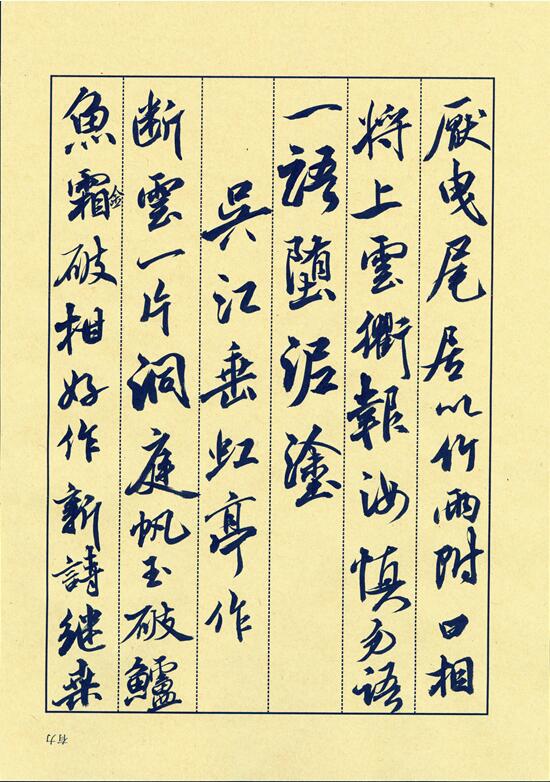 厭曳尾居以竹兩附口相
将上雲衢報汝慎勿語
一語堕泥塗
吳江垂虹亭作
断雲一片洞庭帆玉破鱸
魚霜金破柑好作新詩継桑
有力